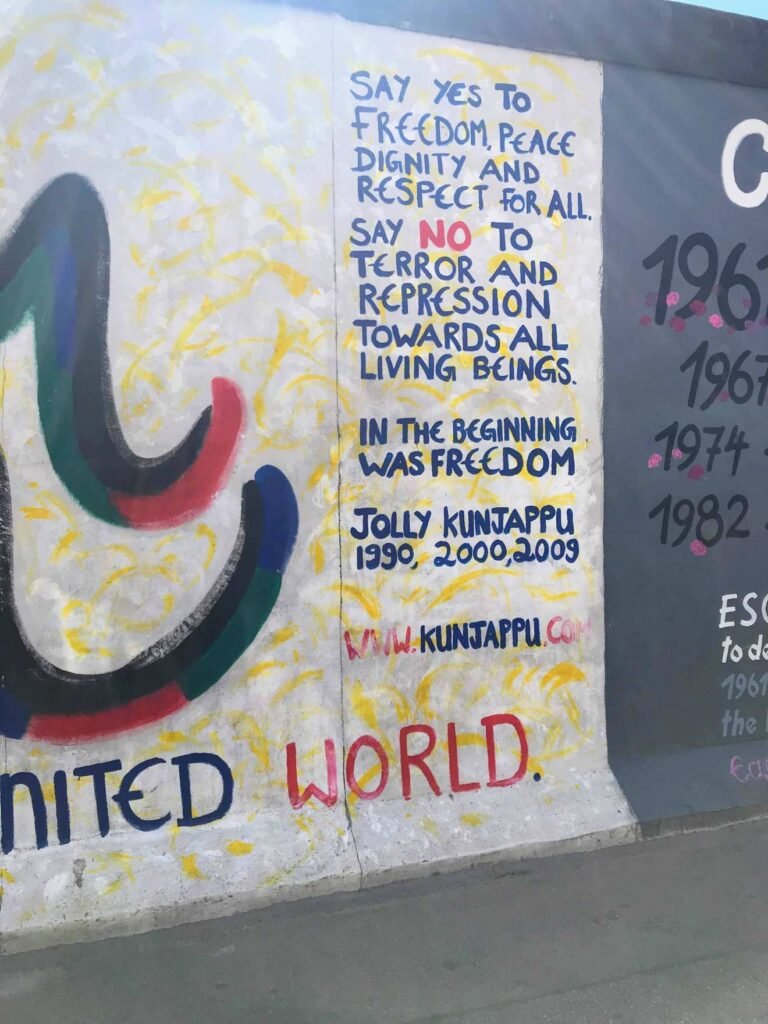 SAY YES TO
FREEDOM, PEACE
DIGNITY AND
RESPECT FOR ALL.
SAY NO TO
TERROR AND
REPRESSION
TOWARDS ALL
LIVING BEINGS.
IN THE BEGINNING
WAS FREEDOM
JOLLY KUNJAPPU
1990, 2000, 2009
WWW.KUNJAPPU.COM
NITED WORLD.
C
1961
1967
1974
1982
ESC
to de
1961
the